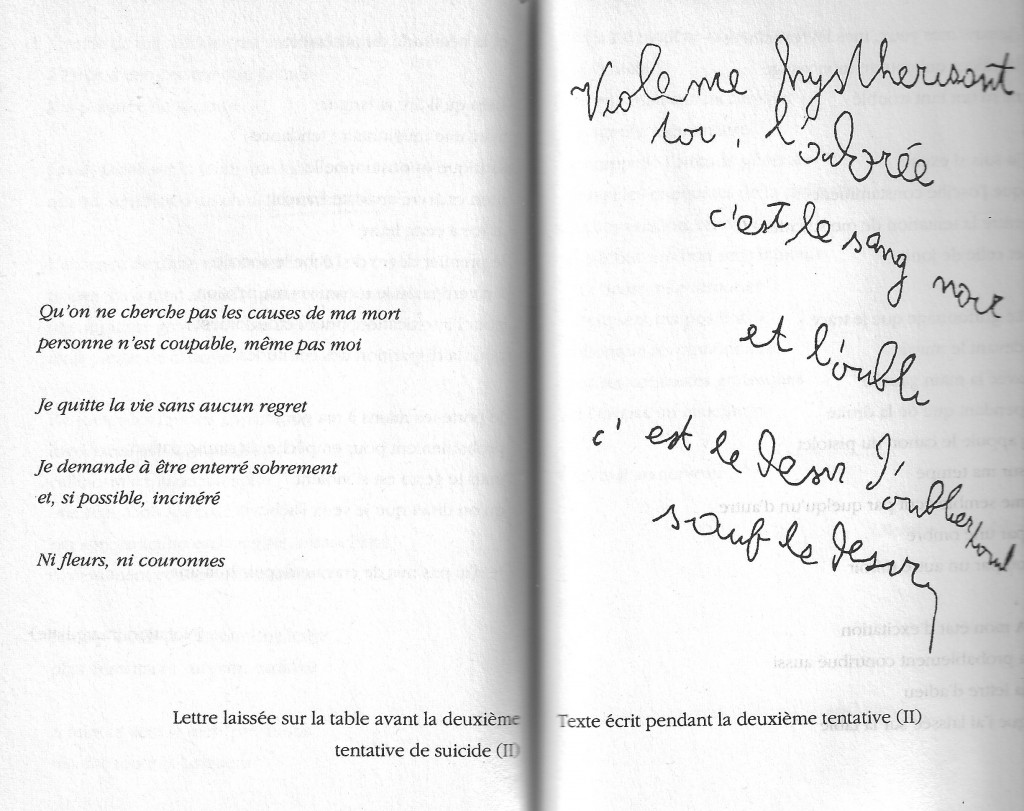 Qu'on ne cherche pas les causes de ma mort
personne n'est coupable, même pas moi
Je quitte la vie sans aucun regret
Je demande à être enterré sobrement
et, si possible, incinéré
Ni fleurs, ni couronnes
Lettre laissée sur la table avant la deuxième
tentative de suicide (II)
Viole me hystherisant
toi, l'adorée
c'est le sang noir
et l'oubli
c'est le desir d'oublier
sauf le desir
Texte écrit pendant la deuxième tentative (II)